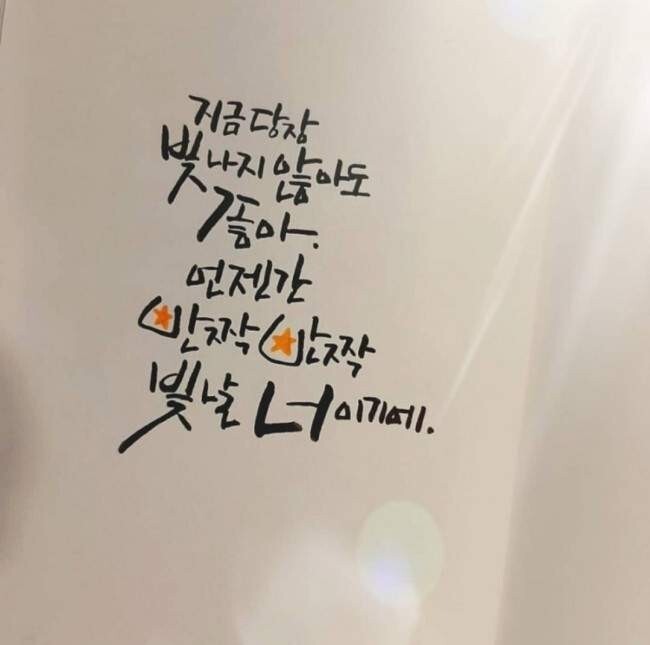 지금 당장
빛나지 않아도
좋아.
언젠간
반짝 반짝
빛날 너이기에.